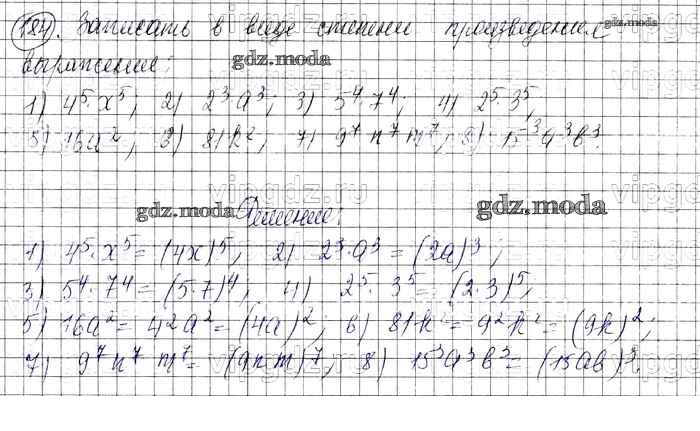 184. Записать в виде степени произведения
выражение:
1) 4⁵·x⁵; 2) 2³·a³; 3) 5⁴·7⁴; 4) 2⁵·3⁵;
5) 16a²; 6) 81k²; 7) 9⁷n⁷m⁷; 8) 15³a³b³.
Решение:
1) 4⁵·x⁵=(4x)⁵; 2) 2³·a³=(2a)³;
3) 5⁴·7⁴=(5·7)⁴; 4) 2⁵·3⁵=(2·3)⁵;
5) 16a²=4²a²=(4a)²; 6) 81k²=9²k²=(9k)²;
7) 9⁷n⁷m⁷=(9nm)⁷; 8) 15³a³b³=(15ab)³.
gdz.moda
gdz.moda
gdz.moda
gdz.moda
vipgdz.ru